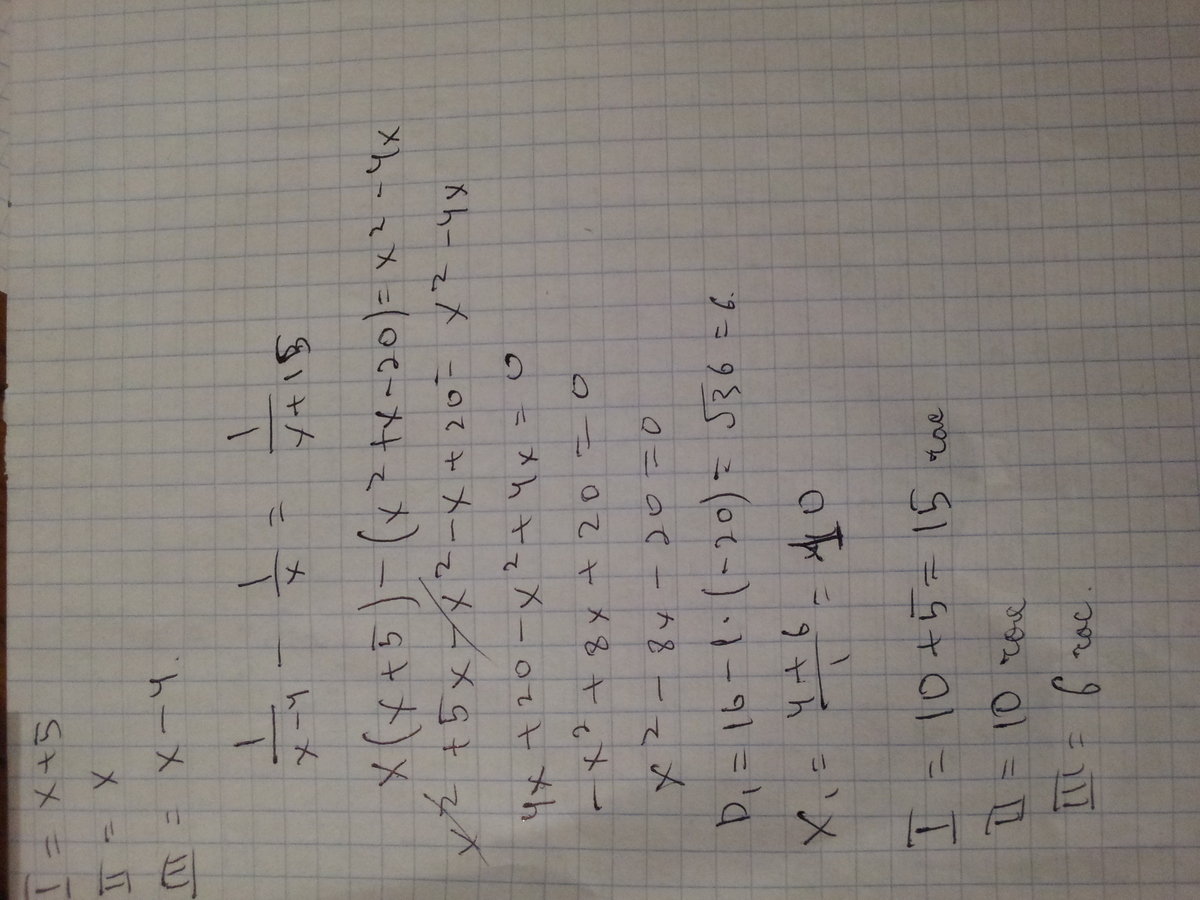 I = x+5
II = x
III = x-4.
1/(x-4) - 1/x = 1/(x+15)
x(x+5)-(x²+x-20)=x²-4x
x²+5x-x²-x+20=x²-4x
4x+20-x²+4x=0
-x²+8x+20=0
x²-8x-20=0
D₁=16-1·(-20)=√36=6.
x₁=(4+6)/1=10
I = 10+5=15 час
II = 10 час
III = 6 час.